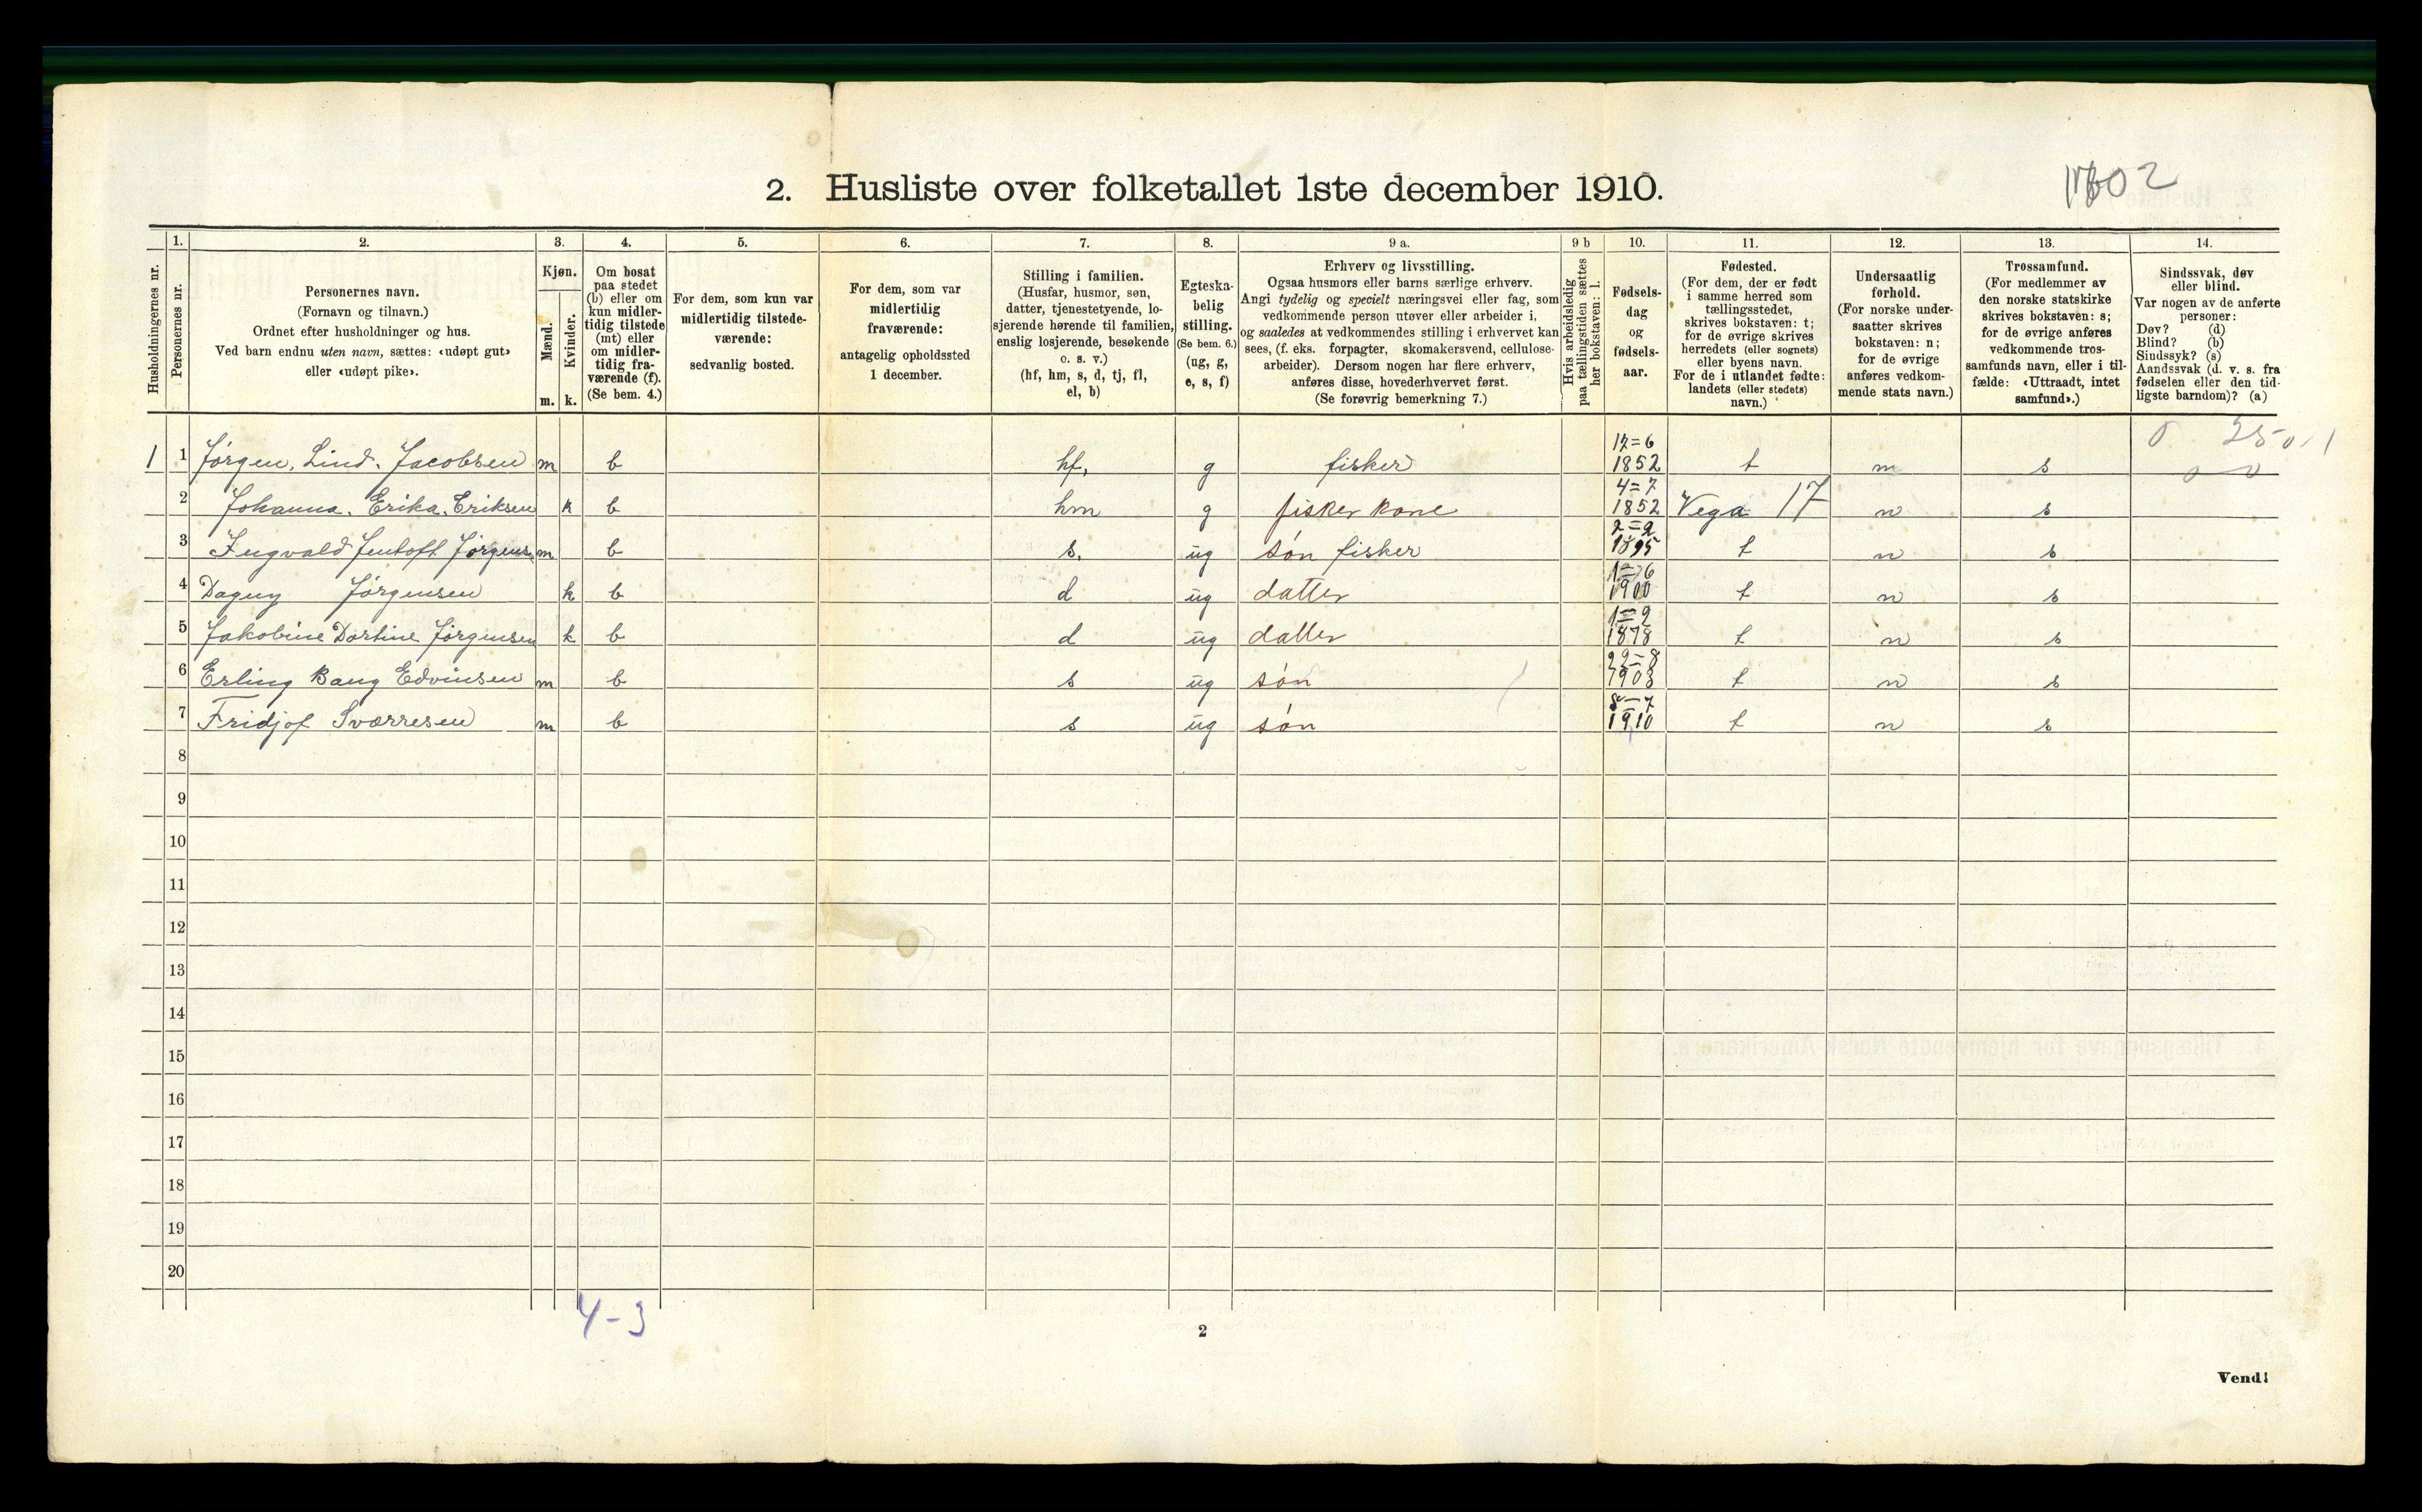 2. Husliste over folketallet 1ste december 1910.
1. 2. 3. 4. 5. 6. 7. 8. 9 a. 9 b 10. 11. 12. 13. 14.
Husholdningernes nr.
Personernes nr.
Personernes navn.
(Fornavn og tilnavn.)
Ordnet efter husholdninger og hus.
Ved barn endnu uten navn, sættes: «udøpt gut»
eller «udøpt pike».
Kjøn.
Mænd.
Kvinder.
m. k.
Om bosat
paa stedet
(b) eller om
kun midler-
tidig tilstede
(mt) eller
om midler-
tidig fra-
værende (f).
(Se bem. 4.)
For dem, som kun var
midlertidig tilstede-
værende:
sedvanlig bosted.
For dem, som var
midlertidig
fraværende:
antagelig opholdssted
1 december.
Stilling i familien.
(Husfar, husmor, søn,
datter, tjenestetyende, lo-
sjerende hørende til familien,
enslig losjerende, besøkende
o. s. v.)
(hf, hm, s, d, tj, fl,
el, b)
Egteska-
belig
stilling.
(Se bem. 6.)
(ug, g,
e, s, f)
Erhverv og livsstilling.
Ogsaa husmors eller barns særlige erhverv.
Angi tydelig og specielt næringsvei eller fag, som
vedkommende person utøver eller arbeider i,
og saaledes at vedkommendes stilling i erhvervet kan
sees, (f. eks. forpagter, skomakersvend, cellulose-
arbeider). Dersom nogen har flere erhverv,
anføres disse, hovederhvervet først.
(Se forøvrig bemerkning 7.)
Hvis arbeidsledig
paa tællingstiden sættes
her bokstaven: l.
Fødsels-
dag
og
fødsels-
aar.
Fødested.
(For dem, der er født
i samme herred som
tællingsstedet,
skrives bokstaven: t;
for de øvrige skrives
herredets (eller sognets)
eller byens navn.
For de i utlandet fødte:
landets (eller stedets)
navn.)
Undersaatlig
forhold.
(For norske under-
saatter skrives
bokstaven: n;
for de øvrige
anføres vedkom-
mende stats navn.)
Trossamfund.
(For medlemmer av
den norske statskirke
skrives bokstaven: s;
for de øvrige anføres
vedkommende tros-
samfunds navn, eller i til-
fælde: «Uttraadt, intet
samfund».)
Sindssvak, døv
eller blind.
Var nogen av de anførte
personer:
Døv? (d)
Blind? (b)
Sindssyk? (s)
Aandssvak (d. v. s. fra
fødselen eller den tid-
ligste barndom)? (a)
1 1 Jørgen. Lind. Jacobsen m b hf, g fisker 12=6 1852 t n s
2 Johanna. Erika. Eriksen k b hm g fisker kone 4=7 1852 Vega 17 n s
3 Ingvald Jentoft Jørgens m b s. ug søn fisker 2=2 1895 t n s
4 Dagny Jørgensen k b d ug datter 1=6 1900 t n s
5 Jakobine Dortine Jørgensen k b d ug datter 1=2 1878 t n s
6 Erling Bang Edvinsen m b s ug søn 22=8 1903 t n s
7 Fridjof Sværresen m b s ug søn 8=7 1910 t n s
8
9
10
11
12
13
14
15
16
17
18
19
20
4-3
2
Vend!